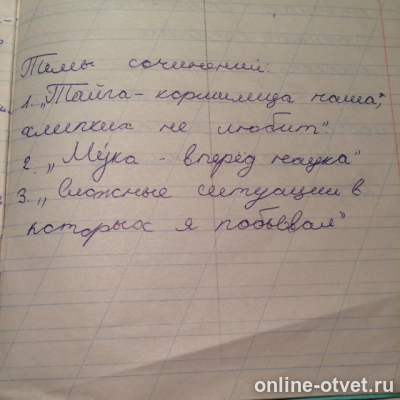 Темы сочинений:
1. „Тайга - кормилица наша,
хлипких не любит".
2. „Му́ка - вперёд наука"
3. „ вложные ситуации в
которых я побывал"
online-otvet.ru